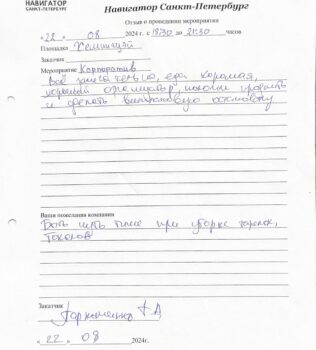 НАВИГАТОР
САНКТ-ПЕТЕРБУРГ
Навигатор Санкт-Петербург
Отзыв о проведении мероприятия
«22» 08 2024 г. с 18:30 до 21:30 часов
Площадка Хемингуэй
Заказчик
Мероприятие Корпоратив
Всё замечательно, еда хорошая,
хороший
и сделать
Ваши пожелания компании
Быть чуть тише при уборке тарелок,
бокалов
Заказчик
Пархоменко Т А
«22» 08 2024г.